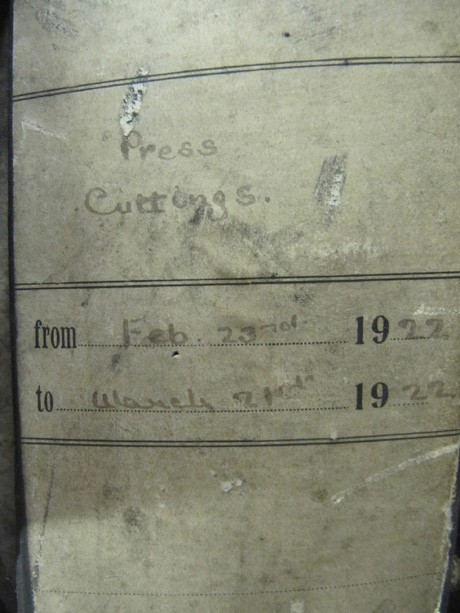 Press
Cuttings.
from Feb. 23rd 1922
to March 1922